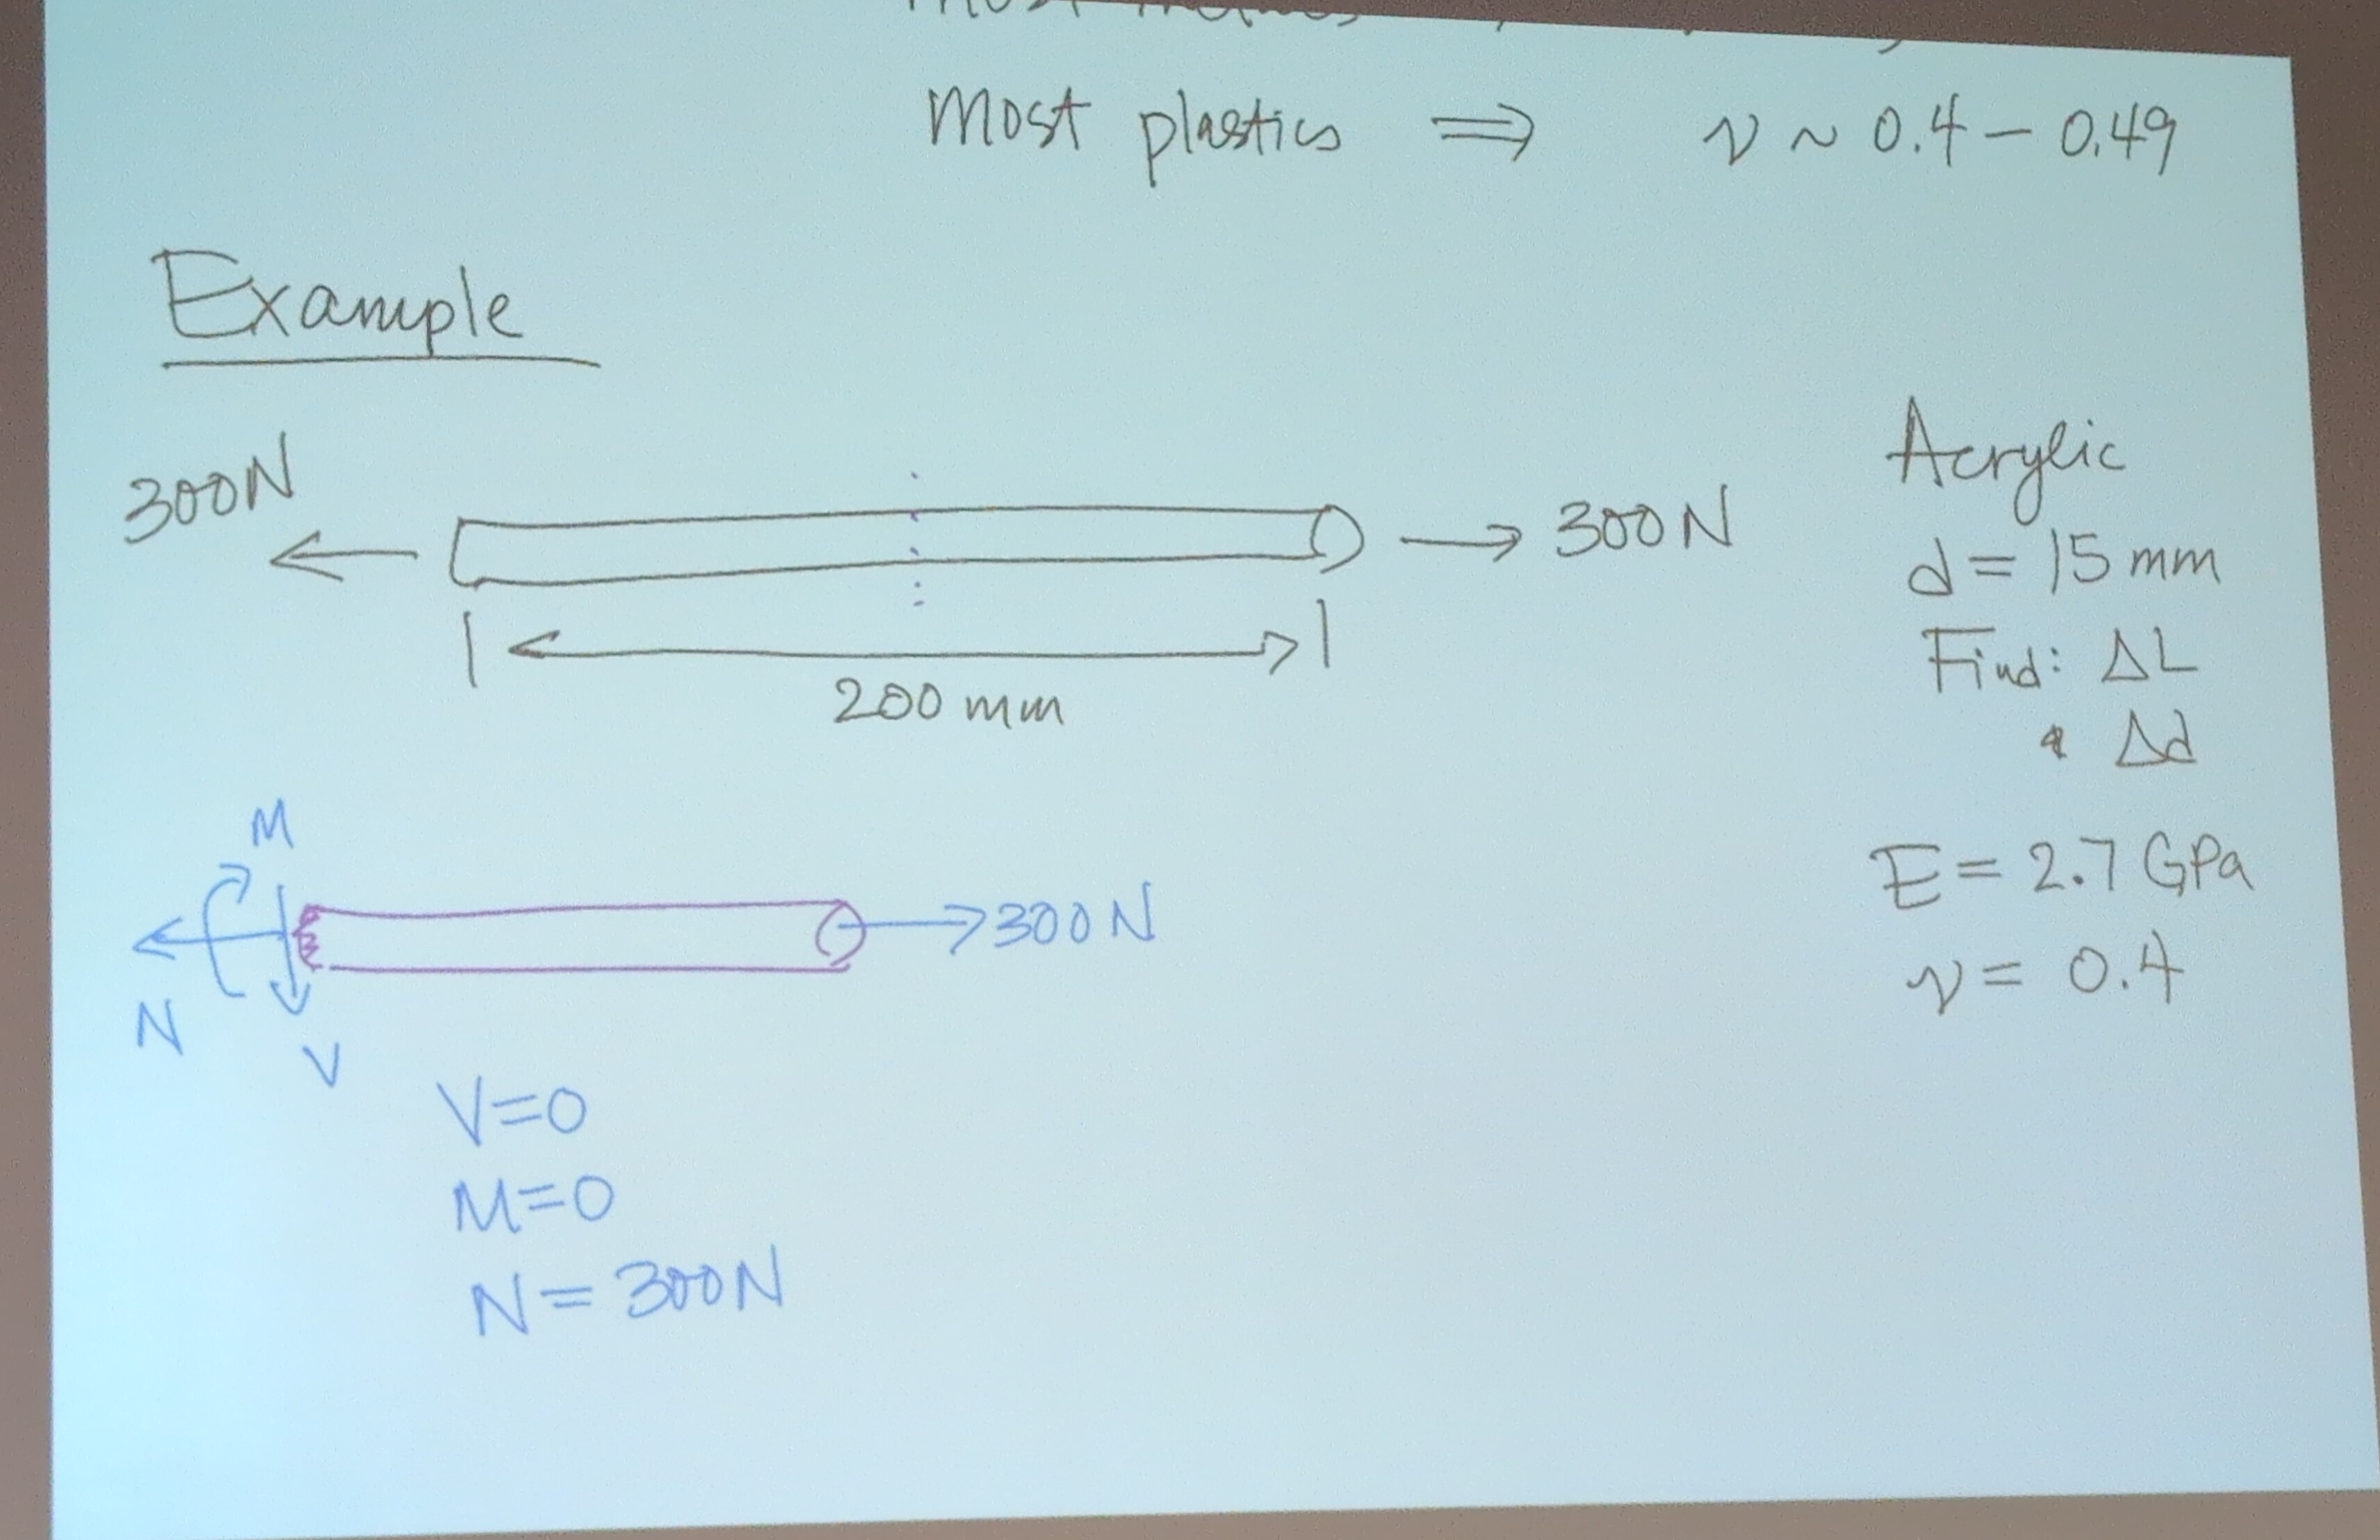 Most plastics ⇒ ν ~ 0.4 – 0.49
Example
300N
→ 300N
200 mm
Acrylic
d = 15 mm
Find: ΔL
& Δd
E = 2.7 GPa
ν = 0.4
M
300N
N
V
V=0
M=0
N = 300N